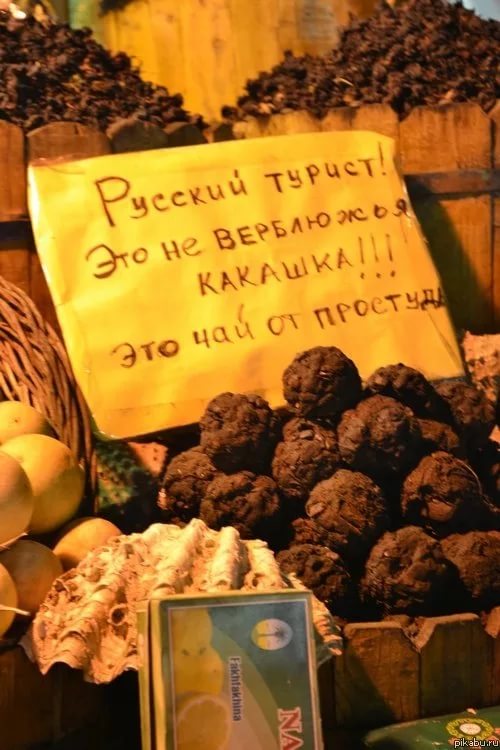 Русский турист!
Это не верблюжья
какашка!!!
это чай от простуды
Fakhfakhina
NA
pikabu.ru